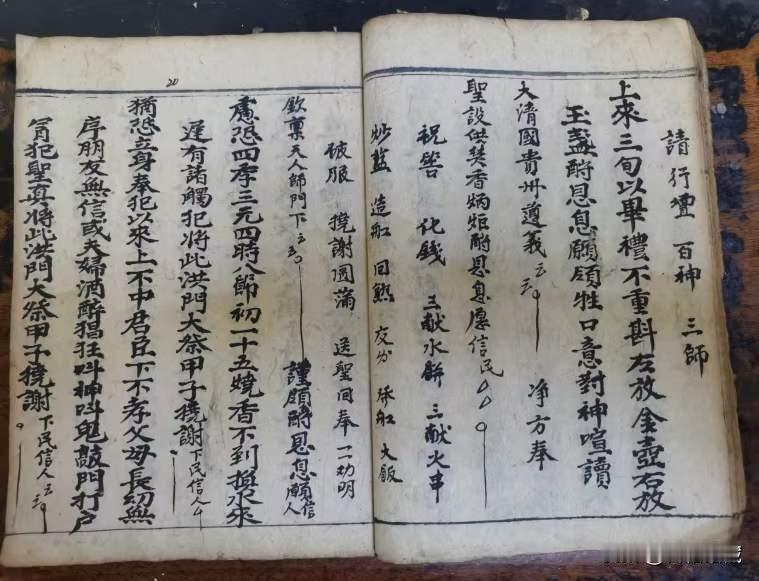 請行壇 百神 三師
上來三旬以畢禮不重斟左放金壺右放
玉盞酧恩息願領牲口意對神喧讀
大清國貴州遵義 净方奉
聖設供焚香炳炬酧恩息厚信民
祝告 化錢 三献水餅 三献火串
炒藍 造紅 回熟 交分 承紅 火飯
被服 撓謝圓蒲 送聖回奉 一一功明
欽稟天人師門下 謹願酧恩息願信人
慮恐四季三元四時八節初一十五燒香不到換水來
遲有諸觸犯將此洪門大祭甲子撓謝下民信人
猶恐立身奉犯以來上不中君臣下不孝父母長幼無
序朋友無信或夫婦酒醉猖狂呌神呌鬼敲門打户
冐犯聖真將此洪門大祭甲子撓謝下民信人
20